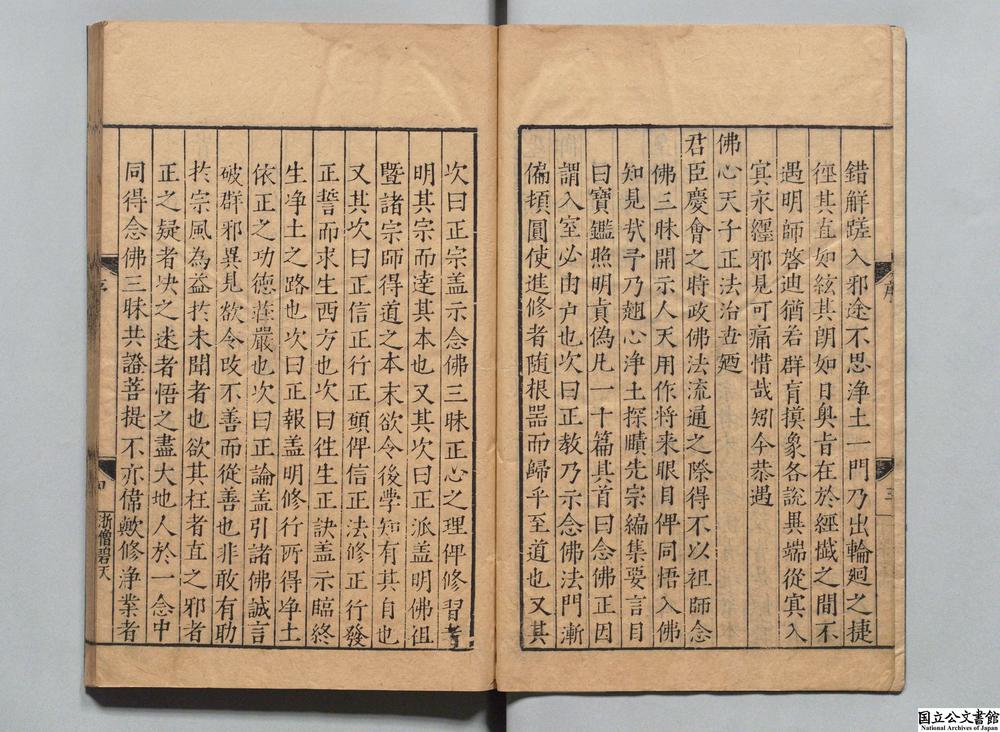 錯解蹉入邪途不思淨土一門乃出輪廻之捷
徑其直如絃其朗如日奧旨在於經懺之間不
遇明師啓迪猶若群盲摸象各說異端從冥入
冥永纏邪見可痛惜哉矧今恭遇
佛心天子正法治世廼
君臣慶會之時政佛法流通之際得不以祖師念
佛三昧開示人天用作將來眼目俾同悟入佛
知見哉予乃翹心淨土探賾先宗編集要言目
曰寶鑑照明眞僞凡一十篇其首曰念佛正因
謂入室必由户也次曰正教乃示念佛法門漸
偏頓圓使進修者随根器而歸乎至道也又其
序
三
次曰正宗盖示念佛三昧正心之理俾修習者
明其宗而達其本也又其次曰正派盖明佛祖
暨諸宗師得道之本末欲令後學知有其自也
又其次曰正信正行正願俾信正法修正行發
正誓而求生西方也次曰徃生正訣盖示臨終
生净土之路也次曰正報盖明修行所得净土
依正之功德莊嚴也次曰正論盖引諸佛誠言
破群邪異見欲令改不善而從善也非敢有助
扵宗風為益扵未聞者也欲其枉者直之邪者
正之疑者决之迷者悟之盡大地人於一念中
同得念佛三昧共證菩提不亦偉歟修净業者
序
四
浙僧碧天
国立公文書館
National Archives of Japan